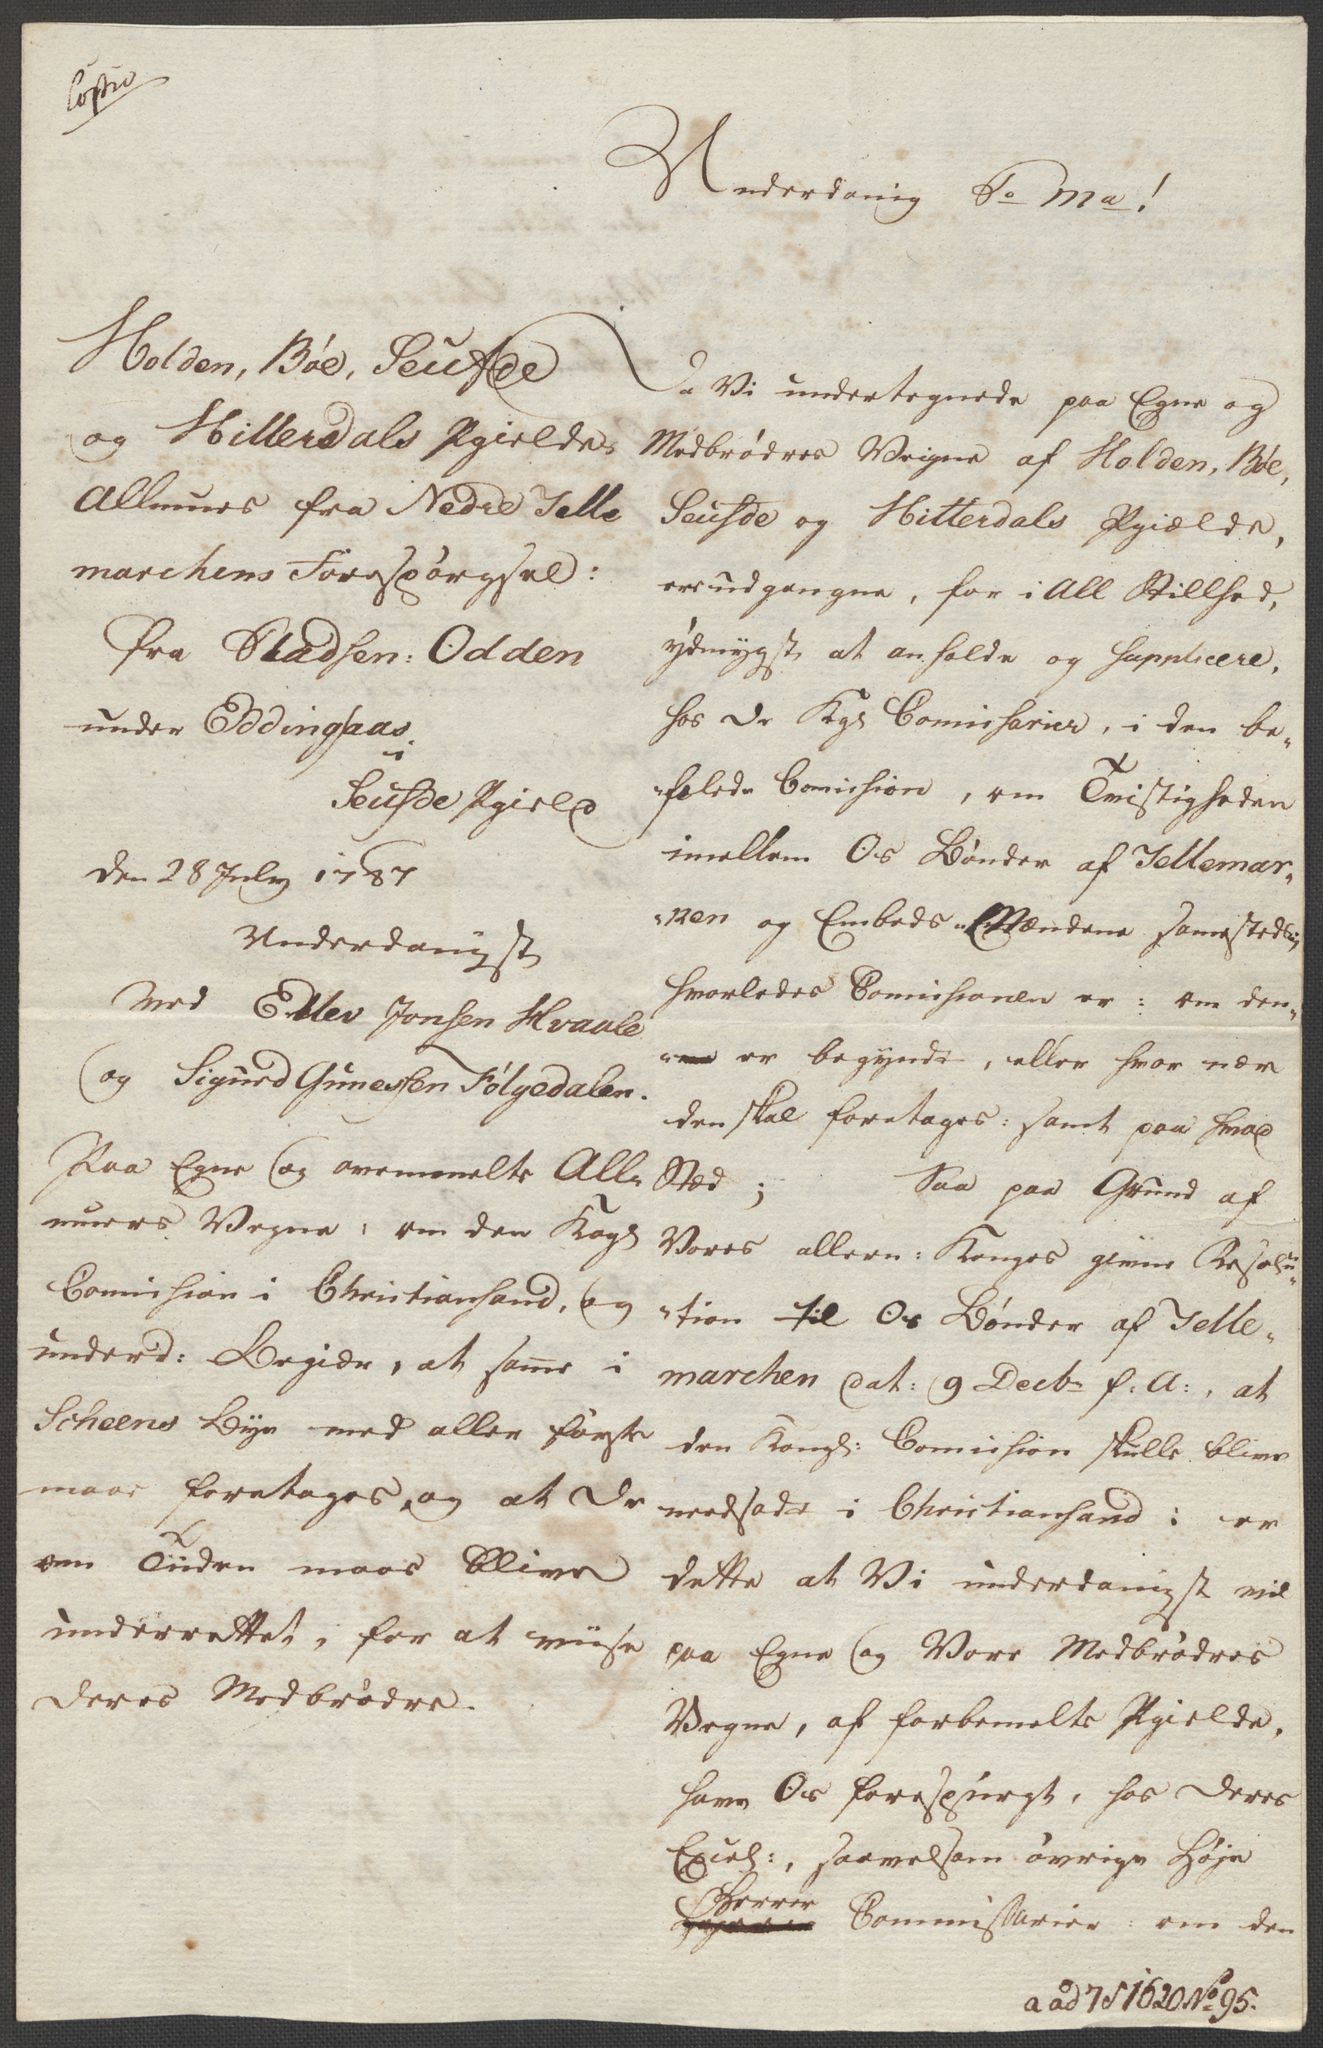 Copia
Underdanig P. M.!
Holden, Bøe, Seufde
og Hitterdals Pgields
Allmues fra Nedre Telle
marchens Forespørgsel:
fra Pladsen: Odden
under Eddingsaas
i
Seufde Pgield
den 28 July 1787
Underdanigst
ved Ellev Jonsen Hvaale
og Sigurd Gunessen Følgedalen.
Paa Egne og ovenmelte All-
mues Vegne: om den Kogl
Comission i Christiansand, og
underd: Begiær, at samme i
Scheens Bye med aller første
maae foretages, og at De
om Tiiden maae blive
underrettet, for at viise
deres Medbrødre.
Da Vi undertegnede paa Egne og
Medbrødres Veigne af Holden, Bøe,
Seufde og Hitterdals Pgiælde,
ere udgangne, for i All Stillhed,
ydmygst at anholde og supplicere,
hos De Kgl Comissarier, i den be-
-falede Comission, om Tvistigheden
imellem Os Bønder af Tellemar-
-ken og Embeds-Mændene samesteds
hvorledes Comissionen er: om den-
er begyndt, eller hvor nær
den skal foretages: samt paa hvad
Stæd; Saa paa Grund af
Vores allern: Konges givne Resolu-
-tion til Os Bønder af Telle-
marchen dat: 9 Decbr f: A:, at
den Kongl: Comission skulle blive
nedsadt i Christiansand: er
dette at Vi underdanigst vil
paa Egne og Vore Medbrødres
Vegne, af forbemelte Pgielde,
have Os forespurgt, hos Deres
Excel:, saavelsom øvrige Høje
Herrer
Commissarier: om den
a ad 7 S 1620 No 95.